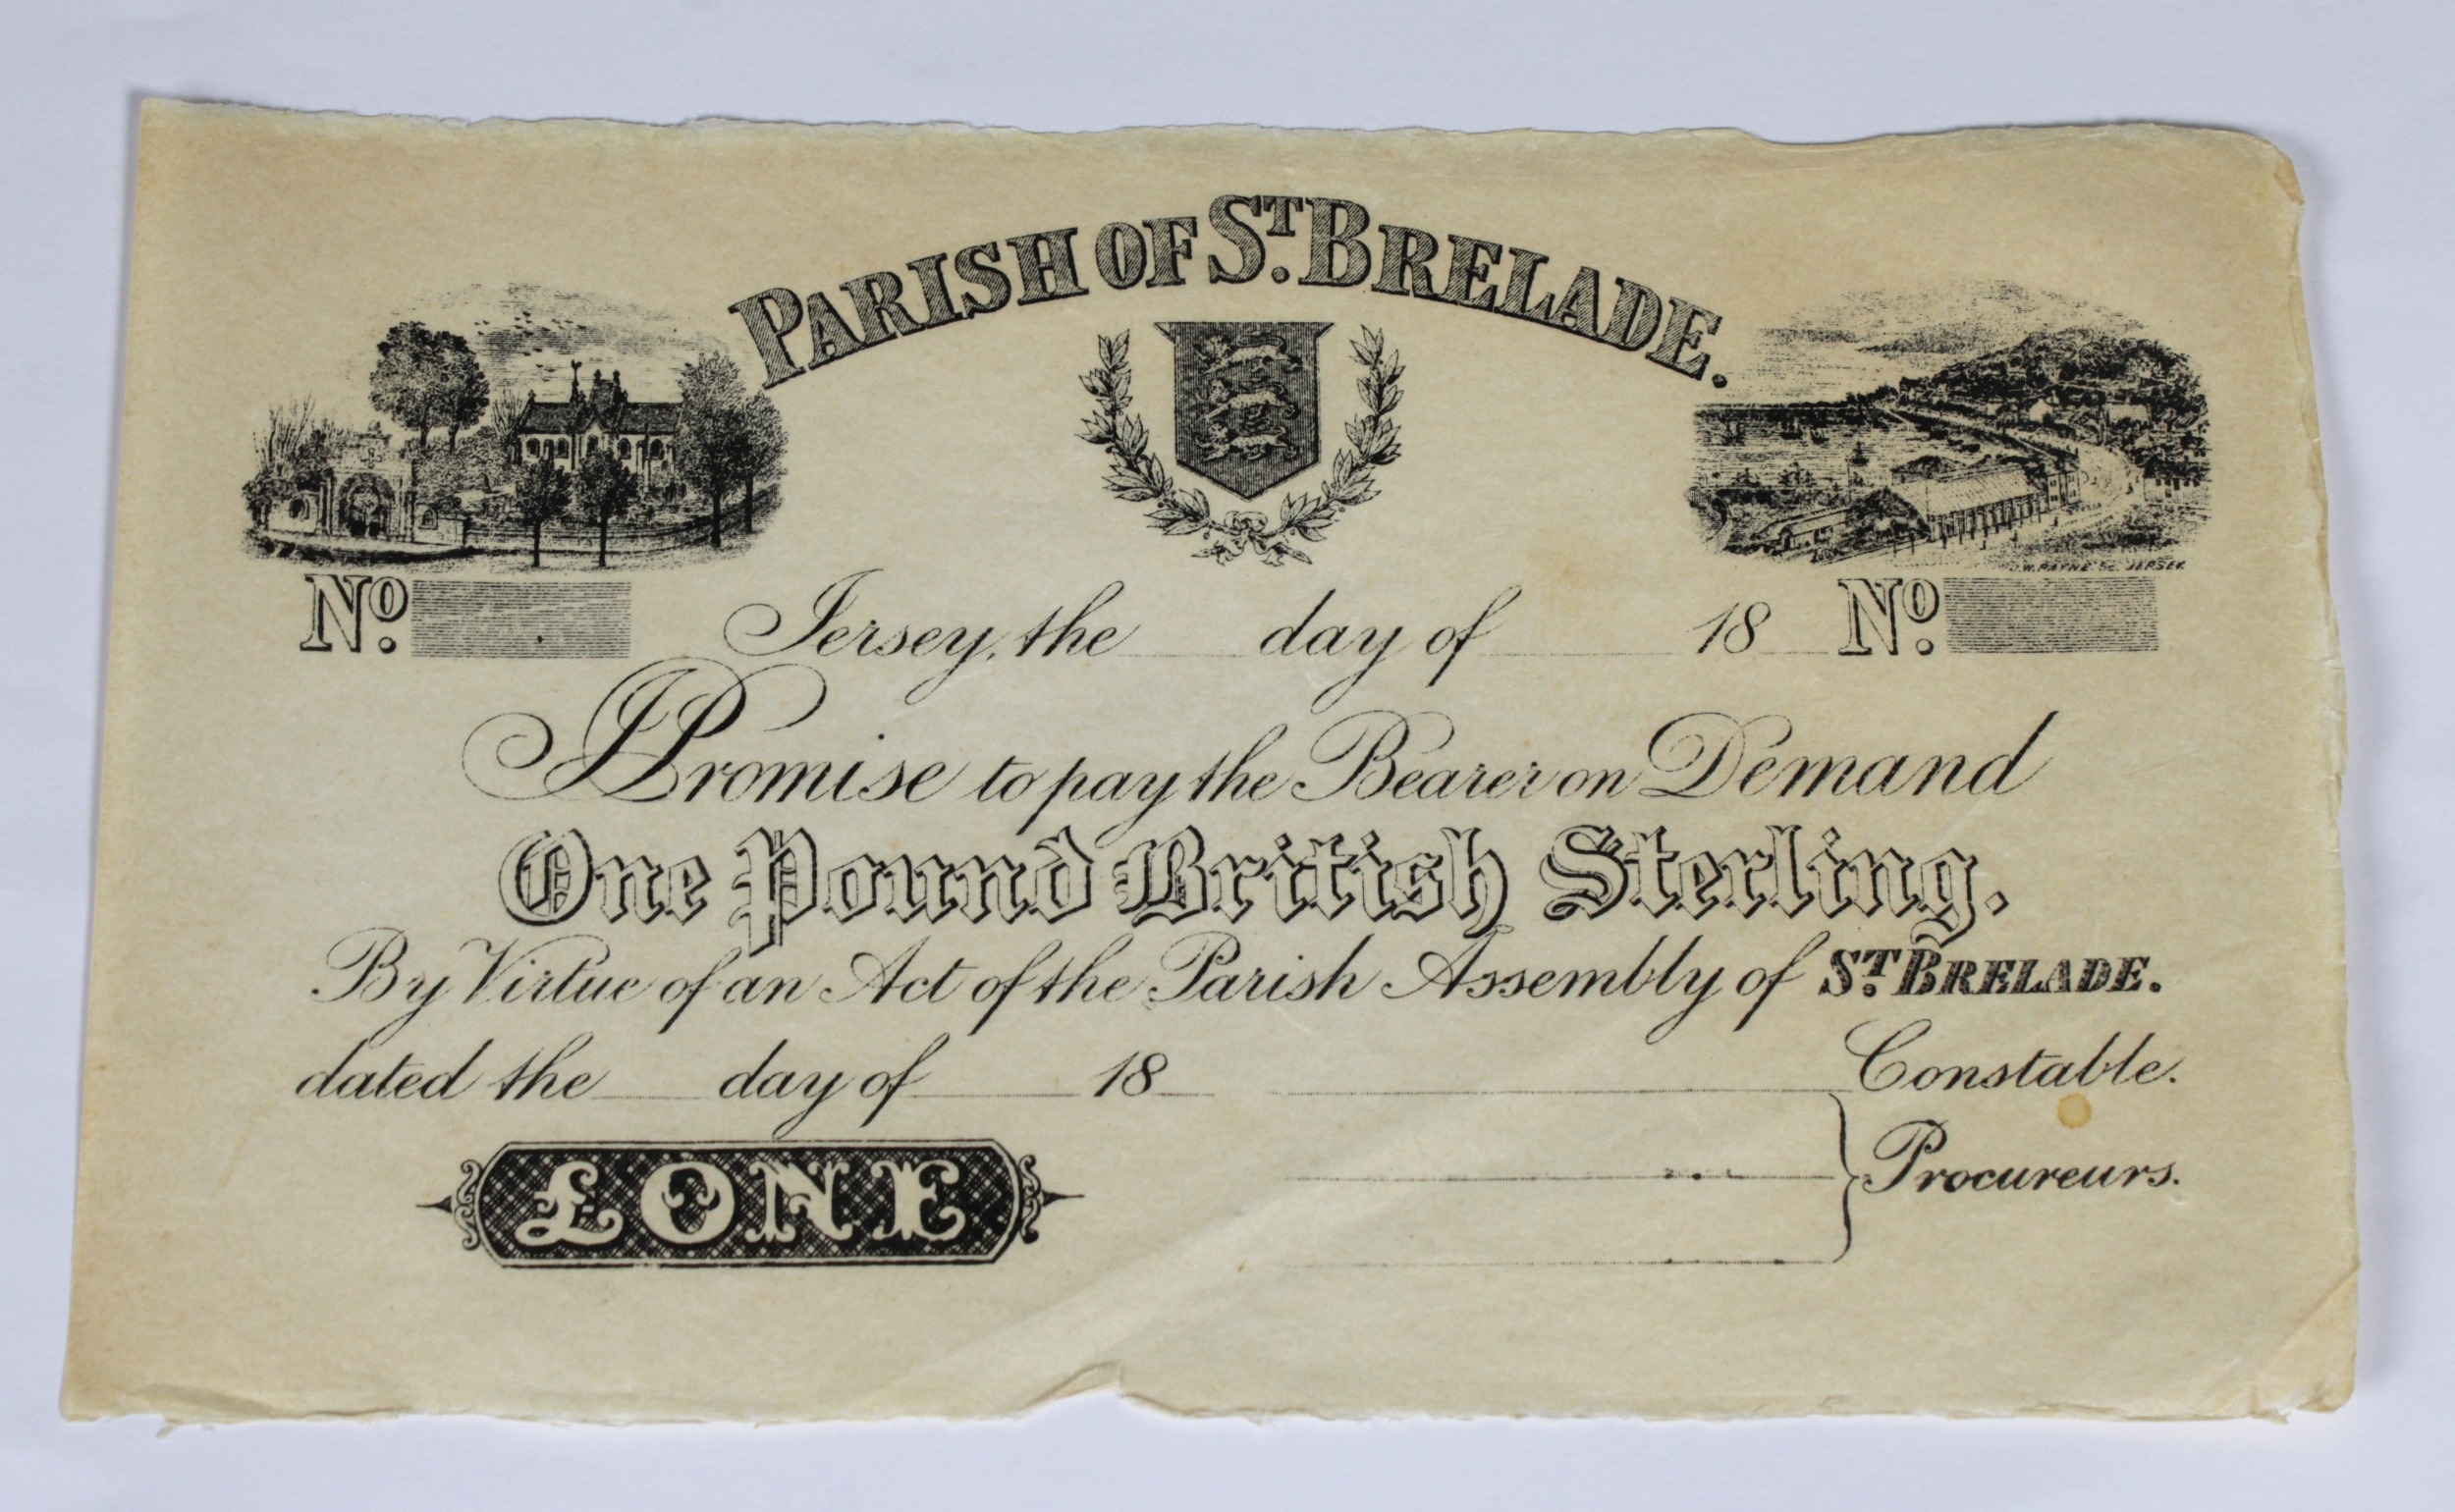 PARISH OF ST. BRELADE.
W. PAYNE SC. JERSEY.
No. Jersey, the day of 18 No.
I Promise to pay the Bearer on Demand
One Pound British Sterling.
By Virtue of an Act of the Parish Assembly of ST. BRELADE.
dated the day of 18 Constable.
£ ONE
Procureurs.